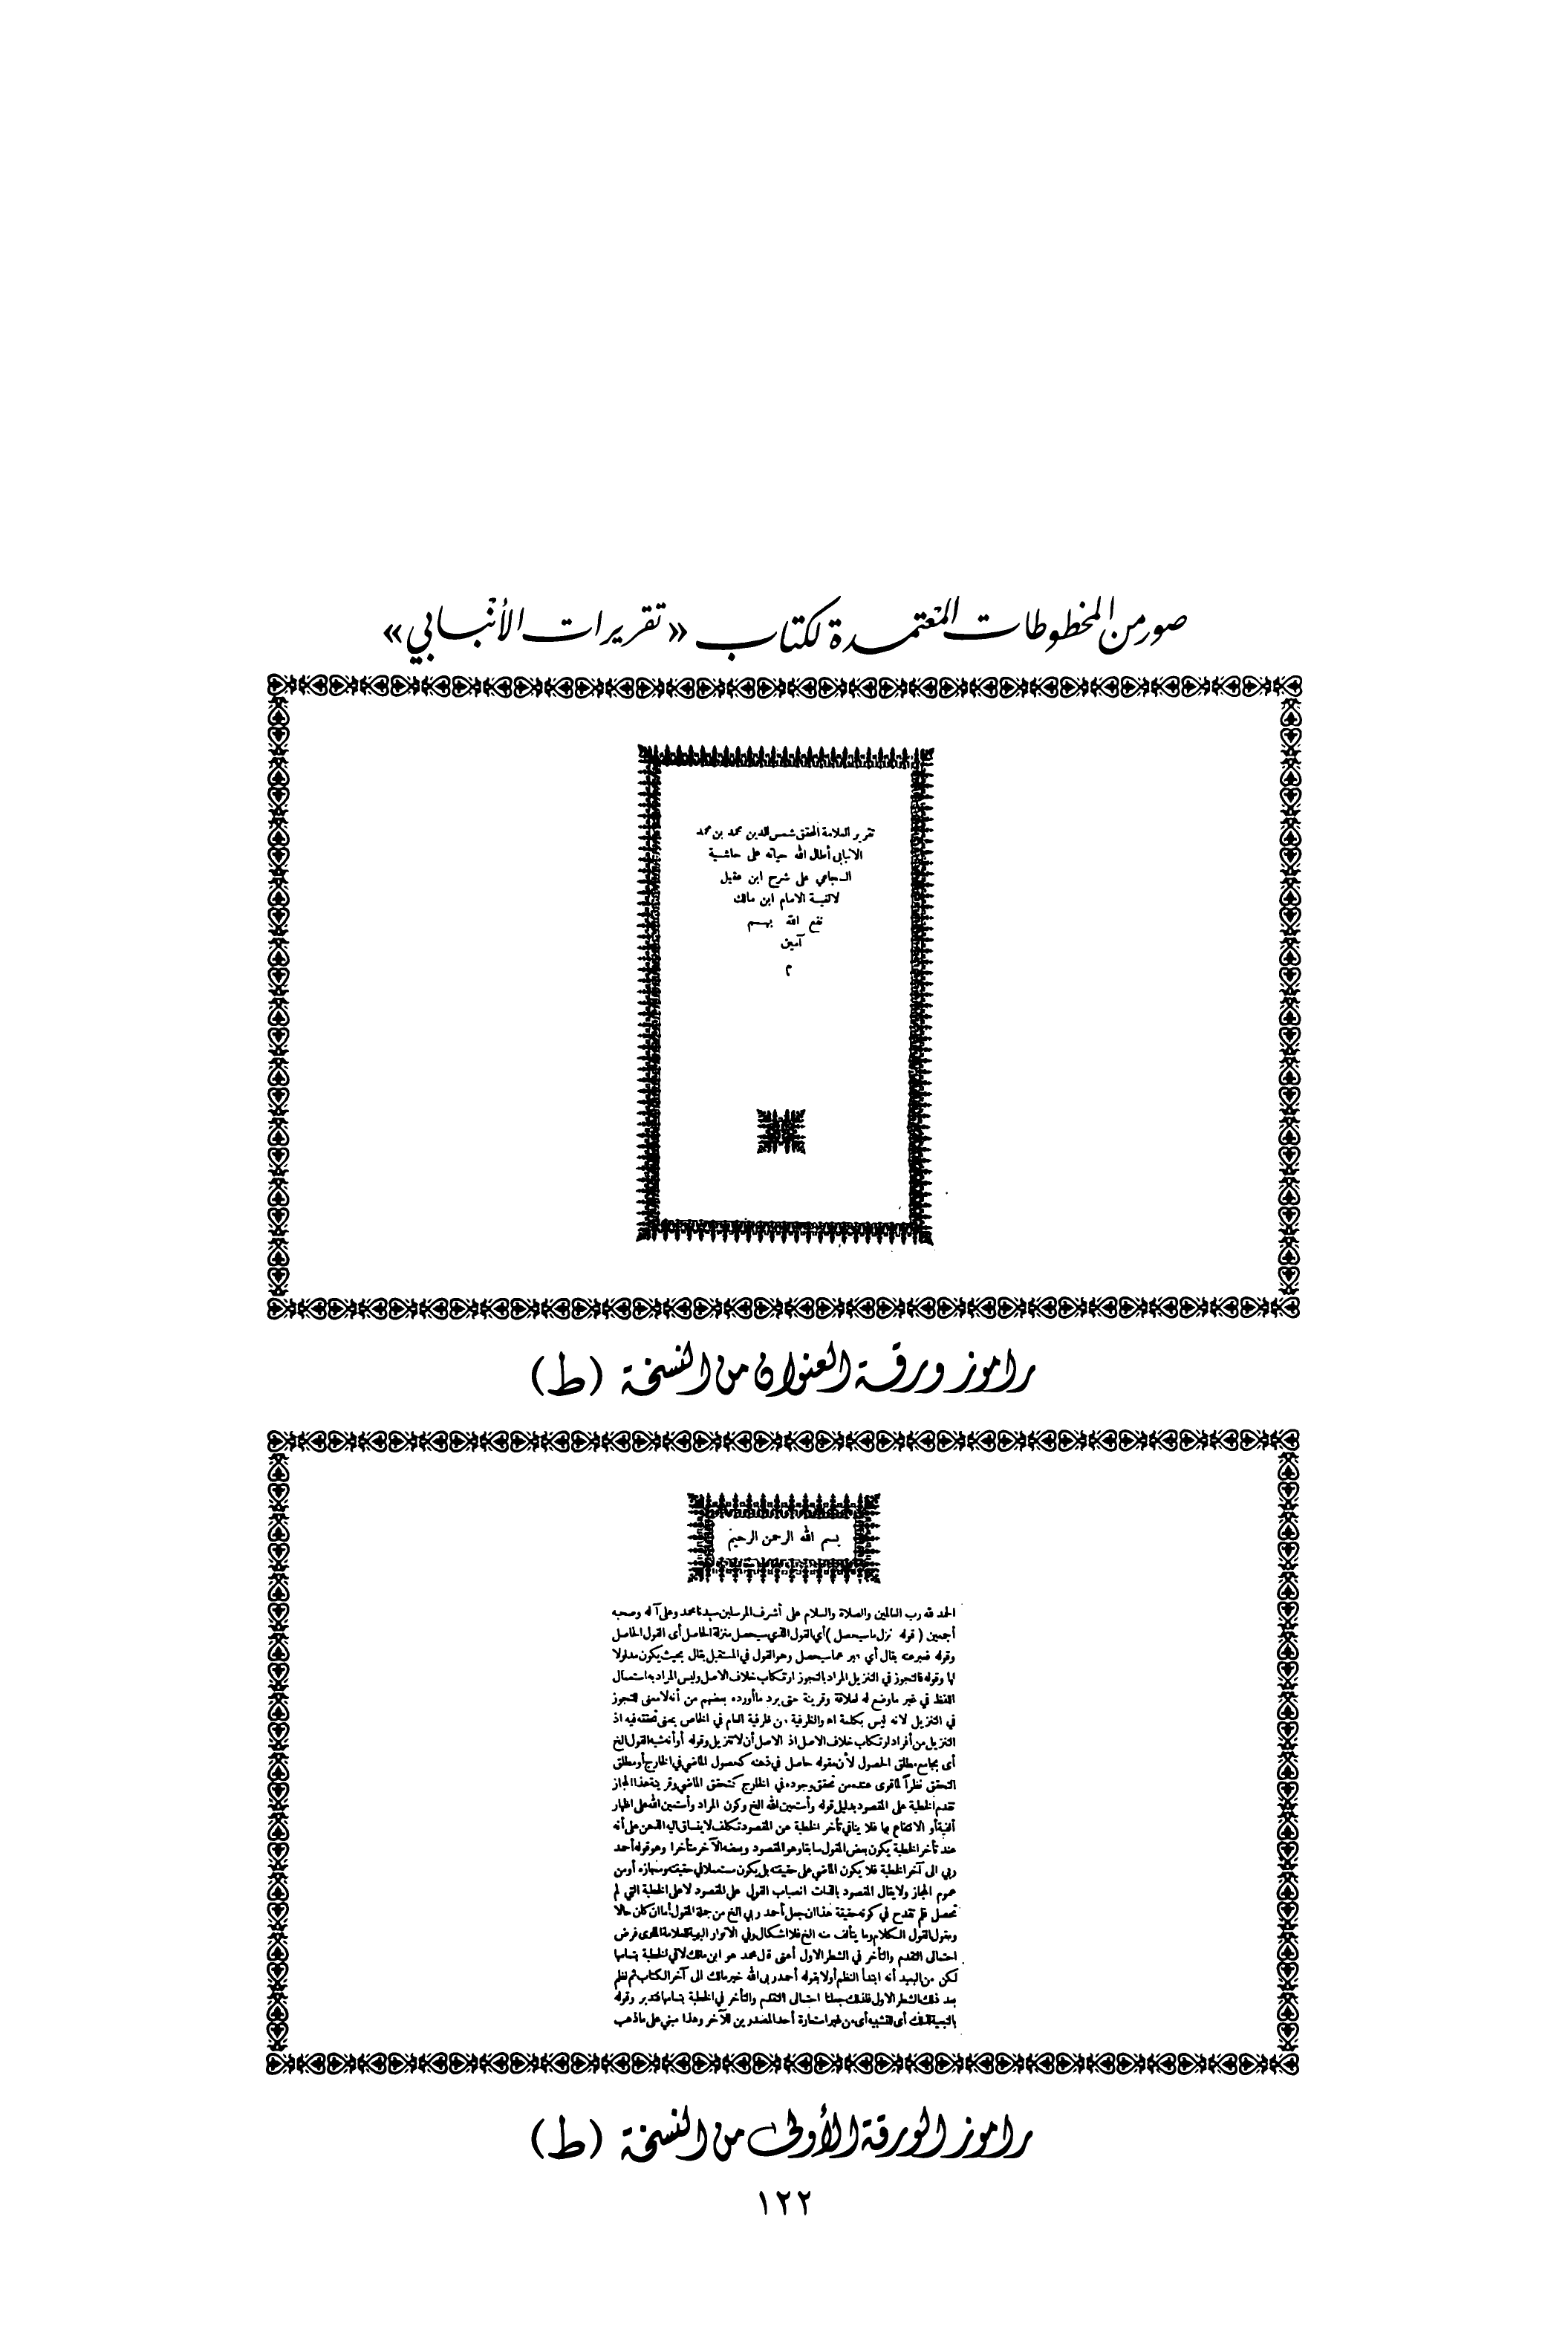 صور من المخطوطات المعتمدة لكتاب «تقريرات الأنبابي»
تقرير العلامة المحقق شمس الدين محمد بن محمد
الانبابى أطال الله حياته على حاشية
السجاعي على شرح ابن عقيل
لالفية الامام ابن مالك
نفع الله بهم
آمين
م
راموز ورقة العنوان من النسخة (ط)
بسم الله الرحمن الرحيم
الحمد لله رب العالمين والصلاة والسلام على أشرف المرسلين سيدنا محمد وعلى آله وصحبه
أجمعين (قوله نزل ما سيحصل) أي القول الذي سيحصل منزلة الحاصل أى القول الحاصل
وقوله فعبر عنه يقال أي عبر عما سيحصل وهو القول في المستقبل بقال بحيث يكون مدلولا
لها وقوله فالتجوز في التنزيل المراد بالتجوز ارتكاب خلاف الاصل وليس المراد به استعمال
اللفظ في غير ما وضع له لعلاقة وقرينة حتى يرد ما أورده بعضهم من أنه لا معنى للتجوز
في التنزيل لانه ليس بكلمة اه والظرفية من ظرفية العام في الخاص بمعنى تحققه فيه اذ
التنزيل من أفراد ارتكاب خلاف الاصل اذ الاصل أن لا تنزيل وقوله أو أنه شبه القول الخ
أى بجامع مطلق الحصول لأن مقوله حاصل في ذهنه كحصول الماضي في الخارج أو مطلق
التحقق نظراً لما قوى عنده من تحقق وجوده في الخارج كتحقق الماضي وقرينة هذا المجاز
تقدم الخطبة على المقصود بدليل قوله وأستعين الله الخ وكون المراد وأستعين الله على اظهار
ألفية أو الانتفاع بها فلا ينافي تأخر الخطبة عن المقصود تكلف لا ينساق اليه الذهن على أنه
عند تأخر الخطبة يكون بعض المقول سابقا وهو المقصود وبعضه الآخر متأخرا وهو قوله أحمد
ربي الى آخر الخطبة فلا يكون الماضي على حقيقته بل يكون مستعملا في حقيقته ومجازه أو من
عموم المجاز ولا يقال المقصود بالذات انصباب القول على المقصود لا على الخطبة التي لم
تحصل فلم تقدح في كونه حقيقة هذا ان جعل أحمد ربي الخ من جملة المقول أما ان كان حالا
ومقول القول الكلام وما يتألف منه الخ فلا اشكال وفي الانوار البهية للعلامة الملوى فرض
احتمالى التقدم والتأخر في الشطر الاول أعنى قال محمد هو ابن مالك لا في الخطبة بتمامها
لكن من البعيد أنه ابتدأ النظم أولا بقوله أحمد ربى الله خير مالك الى آخر الكتاب ثم نظم
بعد ذلك الشطر الاول فلذلك جعلنا احتمالى التقدم والتأخر في الخطبة بتمامها فتدبر وقوله
بالتبعية لذلك أى للتشبيه أى من غير استعارة أحد المصدرين للآخر وهذا مبني على ما ذهب
راموز الورقة الأولى من النسخة (ط)
١٢٢